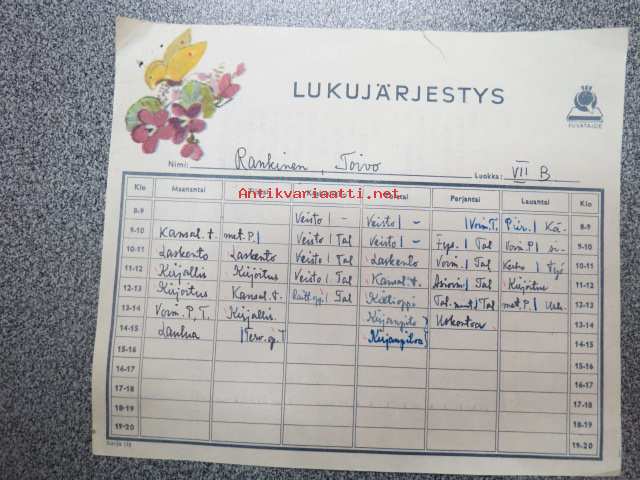 LUKUJÄRJESTYS
KUVATAIDE
Nimi: Rankinen, Toivo Luokka: VII B
Antikvariaatti.net
Klo Maanantai Perjantai Lauantai Klo
8-9 Veisto | - Veisto | - | Voim.T. Piir. | Kä- 8-9
9-10 Kansal.t. met.P.| Veisto | Tal Veisto | - Fys. | Tal Voim.P.| si- 9-10
10-11 Laskento Laskento Veisto | Tal Laskento Voim. | Tal | työ 10-11
11-12 Kirjallis Kirjoitus Veisto | Tal Kansal.t. | Tal Kirjoitus 11-12
12-13 Kirjoitus Kansal.t. | Tal Kielioppi | Tal met.P.| 12-13
13-14 Voim. P, T. Kirjallis. Kirjanpito Uskontoa 13-14
14-15 Laulua |Terv.op.T Kirjanpitoa 14-15
15-16 15-16
16-17 16-17
17-18 17-18
18-19 18-19
19-20 19-20